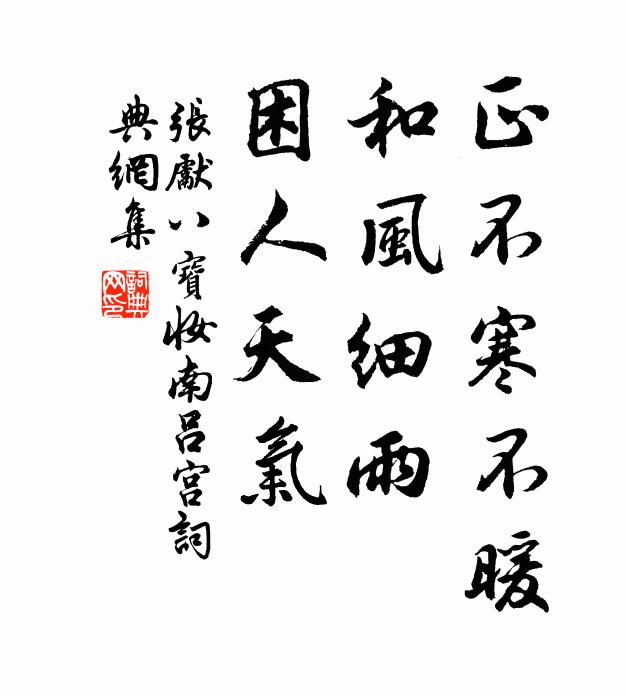 正不寒不暖
和風細雨
困人天氣
張獻八寶妝南呂宮詞
典網集
詞典網印